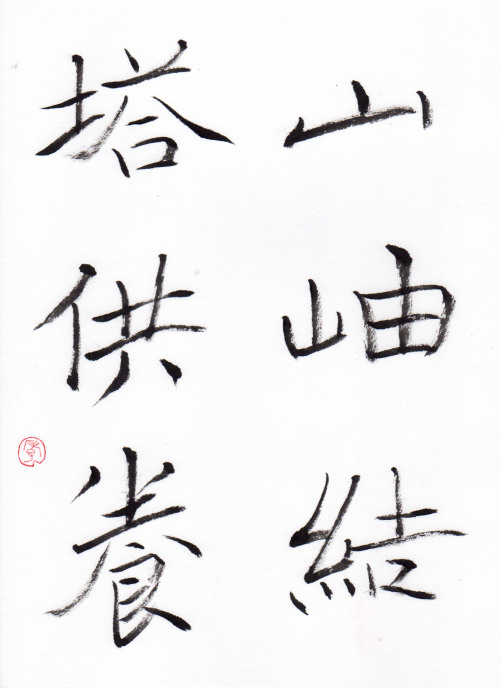 山岫結
塔供養